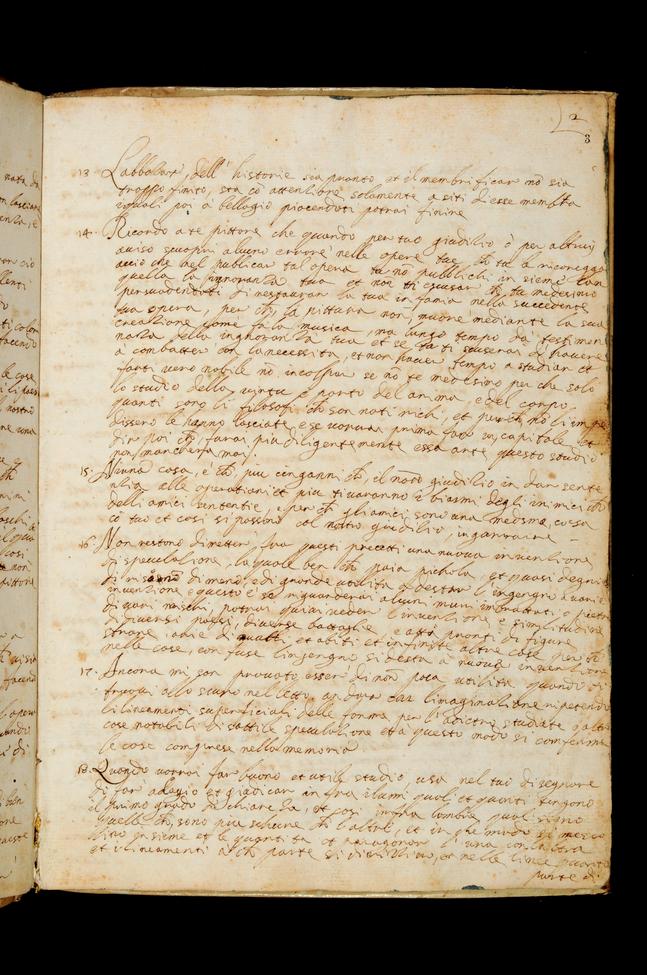 2
3
13. L'abbozar dell' historie sia pronto et il membrificar nō sia
troppo finito, sta cō attento solamente a siti d'esse membra
i quali poi a bellagio piacendoti potrai finire
14. Ricordo a te pittore che quando per tuo giudilio ò per altrui
aviso scuopri alcuni errore nelle opere tue, ch tu le ricoregga
acciò che nel publicar tal opera tu nō publichi in sieme con
quella la ignoranza tua et non ti scusar da tu medesimo
persuadendoti di restaurar la tua infamia nella succedente
tua opera, per ch la pittura non muore mediante la sua
creazione come fa la musica, ma lungo tempo da testimon
nanza della inghoranza tua et se tu ti scuserai di havere
a combatter con la necessita, et non haver tempo a studiar et
farti vero nobile nō incolpar se nō te medesimo per che solo
lo studio della virtu è pasto del anima, e del corpo,
quanti sono li filosofi ch son nati richi, et perch nō li impe
dissero le hanno lasciate
poi farai più diligentemente essa arte questo studio
non mancherà mai.
15. Niuna cosa, è ch piu c'inganni ch il nostro giudilio in dar sente
ntia alle operationi et piu ti varranno i biasmi degli inimici ch
delli amici sententie, per ch gli amici sono una medsma cosa
cō tuo et cosi si possono col nostro giudilio, ingannare
16. Non restono di metter fra questi precetti una nuova inventione
di speculatione, la quale ben ch paia pichola, et quasi degnia
di riso di meno, è di grande utilita a destar l'ingengno a varie
inventione e questo è se riguarderai alcuni muri imbrattati o pietre
di vari meschi, potrai quivi veder l'inventione e similitudine
di diversi paesi, diverse battaglie e atti pronti di figure
strane, arie di et abiti et infinite altre cose per ch
nelle cose, confuse lingengno si desta a nuove inventione
17. Ancora mi son provato esser di nō poca utilita quando ti
truovi allo scuro nel letto, andar con l'imaginatione ripetendo
li lineamenti superficiali delle forme per l'adietro studiate o altre
cose notabili di sottile speculatione et a questo modo si conferma
le cose comprese nella memoria
18. Quando vorrai far buono et utile studio, usa nel tuo disegnare
di far adagio et giudicar infra i lumi quali et quanti tengono
il primo grado di chiareza, et cosi infra lombre quali sieno
quelle ch, sono più schure ch l'altre, et in che modo si mesco
lino insieme et le quantita et paragonar l'una con l'altra
et i lineamenti a ch parte si dirizzino, et nelle linee quanta
parte di